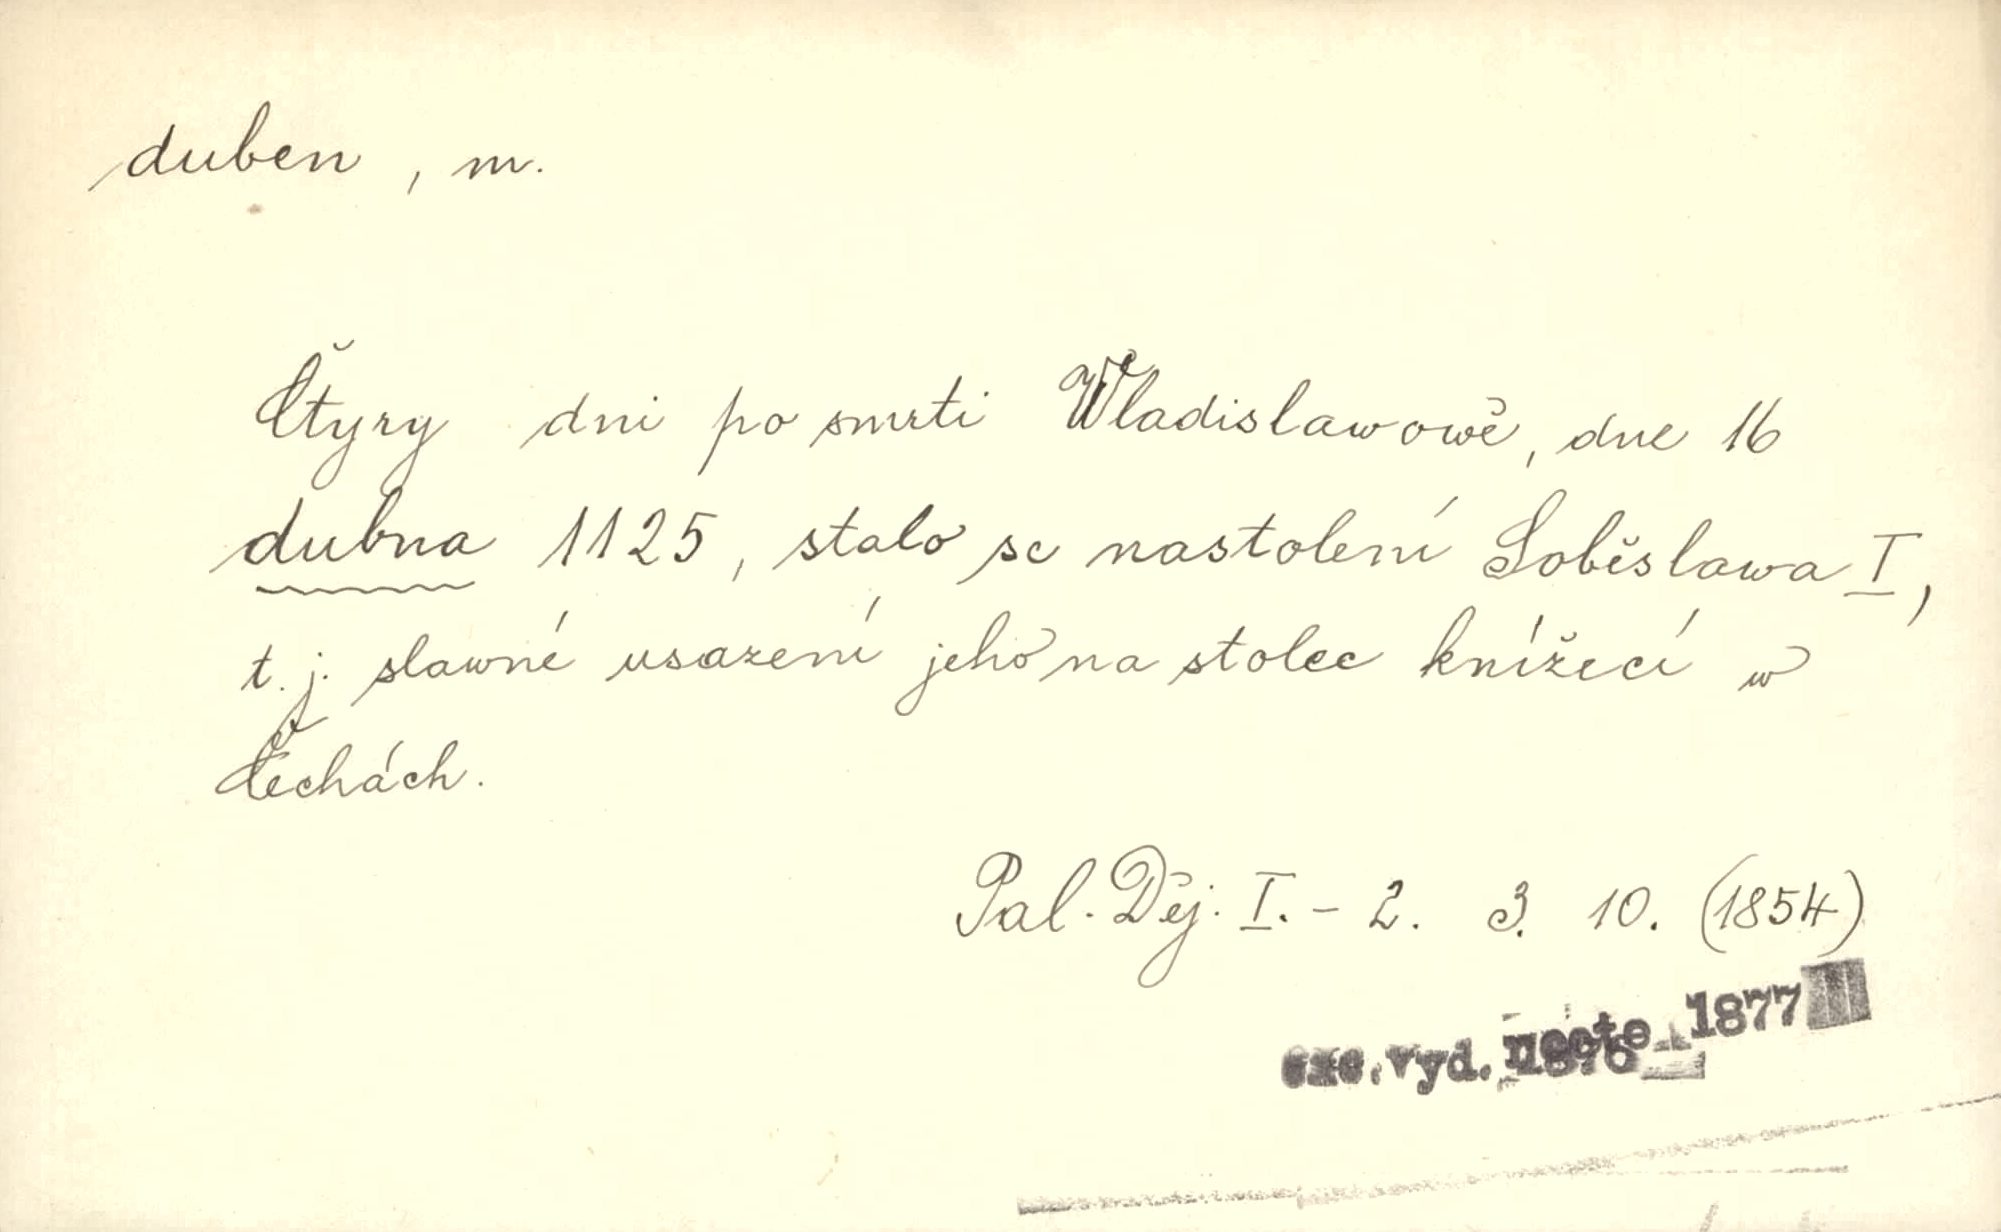 duben, m.
Čtyry dni po smrti Wladislawowě, dne 16
dubna 1125, stalo se nastolení Soběslawa I,
t. j. slawné usazení jeho na stolec knížecí w
Čechách.
Pal. Děj. I. - 2. 3. 10. (1854)
exc. vyd. 1877